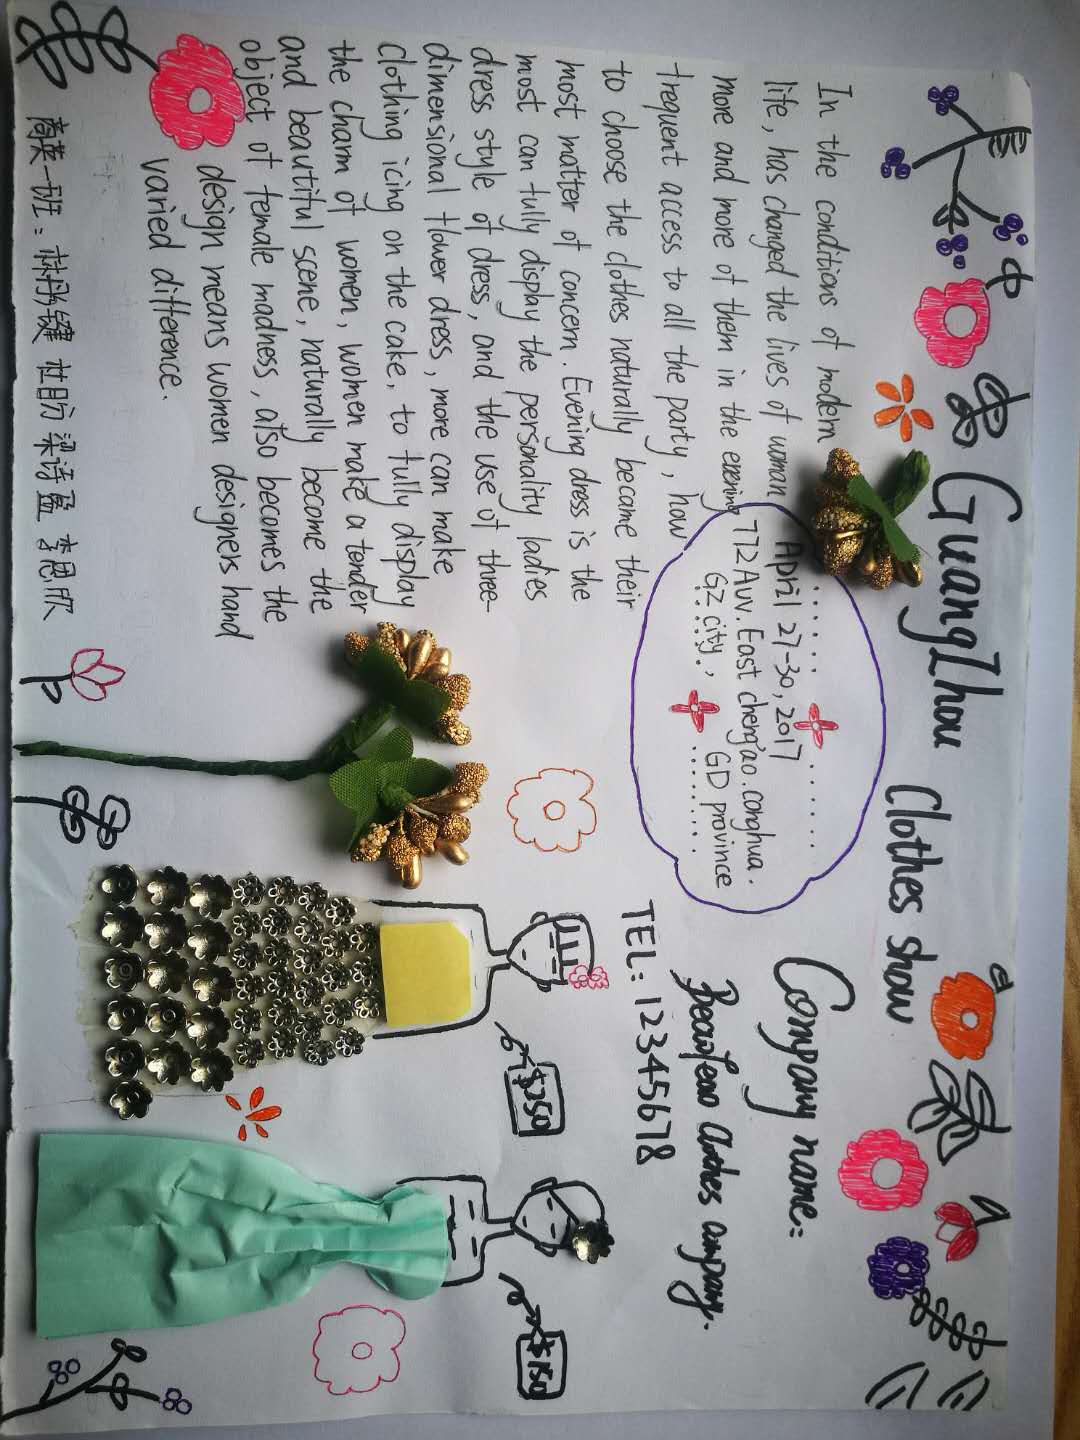 GuangZhou Clothes show
In the conditions of modern
life, has changed the lives of woman
more and more of them in the evening
frequent access to all the party, how
to choose the clothes naturally became their
most matter of concern. Evening dress is the
most can fully display the personality ladies
dress style of dress, and the use of three-
dimensional flower dress, more can make
clothing icing on the cake, to fully display
the charm of women, women make a tender
and beautiful scene, naturally become the
object of female madness, also becomes the
design means women designers hand
varied difference.
April 27-30, 2017
772 Avv. East chengao. conghua.
GZ city, GD province
Company name:
clothes company.
TEL: 12345678
$250
$150
商英一班: 林丹键 杜昉 梁诗盈 李恩欣